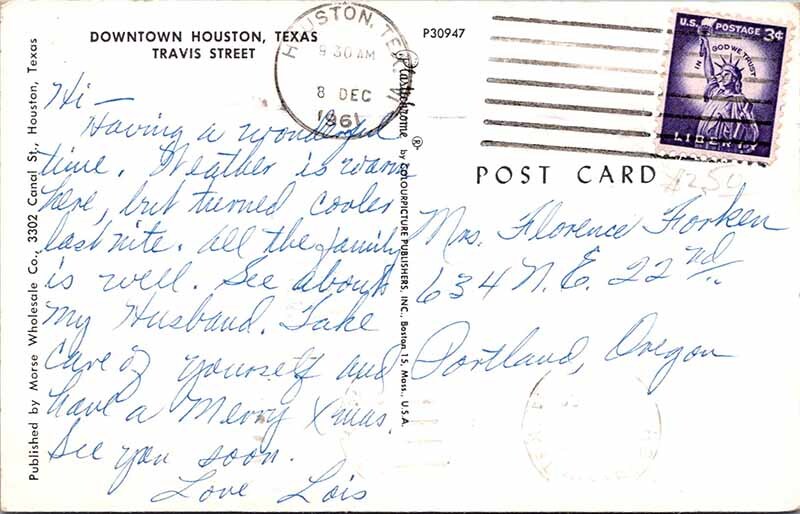 DOWNTOWN HOUSTON, TEXAS
TRAVIS STREET
HOUSTON, TEX
9 30 AM
8 DEC
1961
P30947
U.S. POSTAGE 3¢
IN GOD WE TRUST
LIBERTY
POST CARD
$1250
Hi —
Having a wonderful
time. Weather is warm
here, but turned cooler
last nite. All the family
is well. See about
my Husband. Take
care of yourself and
have a Merry Xmas.
See you soon.
Love Lois
Mrs. Florence Forken
634 N.E. 22nd.
Portland, Oregon
Published by Morse Wholesale Co., 3302 Canal St., Houston, Texas
Plastichrome ® by COLOURPICTURE PUBLISHERS, INC., Boston 15, Mass., U.S.A.